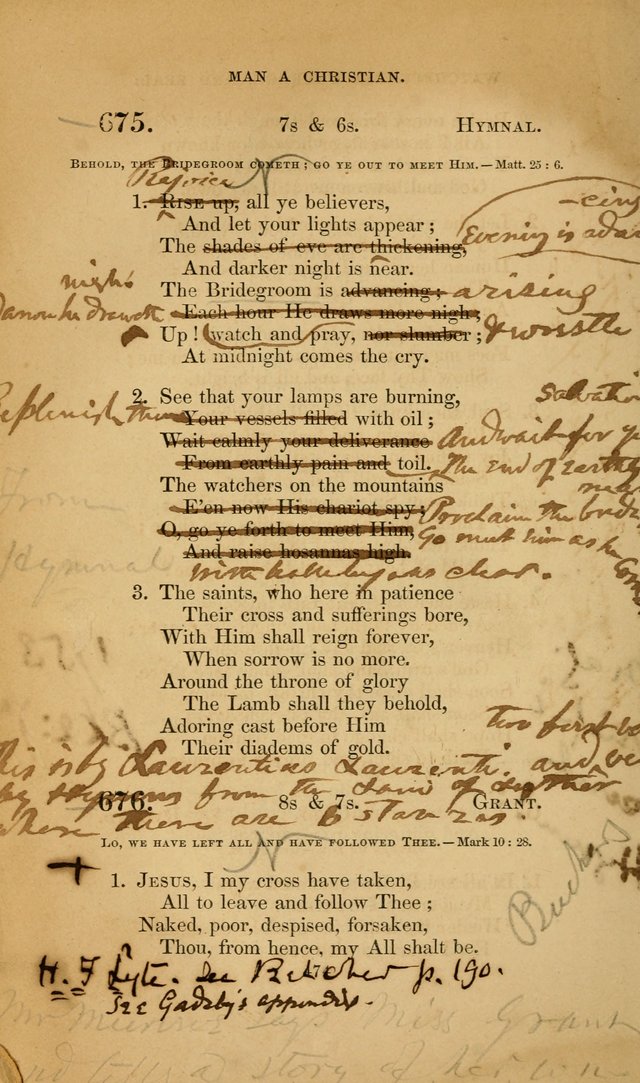 MAN A CHRISTIAN.
675. 7s & 6s. HYMNAL.
BEHOLD, THE BRIDEGROOM COMETH; GO YE OUT TO MEET HIM.—Matt. 25 : 6.
Rejoice
1. RISE up, all ye believers,
-eing
And let your lights appear;
Evening is
The shades of eve are thickening,
And darker night is near.
night
The Bridegroom is advancing; arising
draweth Each hour He draws more nigh;
Up! watch and pray, nor slumber; & wrestle
At midnight comes the cry.
2. See that your lamps are burning,
salvation
Replenish them Your vessels filled with oil;
Wait calmly your deliverance And wait for
From earthly pain and toil. The end of Earthly
The watchers on the mountains
E'en now His chariot spy; Proclaim the
O, go ye forth to meet Him, Go meet him as he
And raise hosannas high.
with clear.
3. The saints, who here in patience
Their cross and sufferings bore,
With Him shall reign forever,
When sorrow is no more.
Around the throne of glory
The Lamb shall they behold,
Adoring cast before Him
two first
Their diadems of gold.
This is by Laurentius Laurenti. and
by Hymns from the Land of Luther
676. 8s & 7s. GRANT.
where there are 6 stanzas.
LO, WE HAVE LEFT ALL AND HAVE FOLLOWED THEE.—Mark 10 : 28.
1. JESUS, I my cross have taken,
All to leave and follow Thee;
Naked, poor, despised, forsaken,
Thou, from hence, my All shalt be.
H. F Lyte. See Beecher p. 190.
See Gadsby's appendix.
Miss Grant
a story of her
From
Hymnal